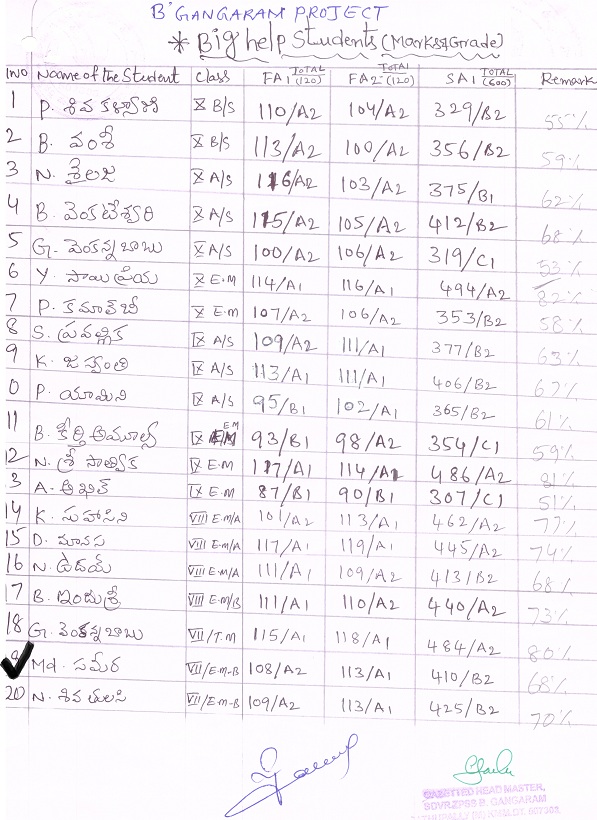 B' GANGARAM PROJECT
* Big help Students (Marks & Grade)
SNO Name of the Student Class FA1 TOTAL (120) FA2 TOTAL (120) SA1 TOTAL (600) Remark
1 P. శివ కళ్యాణి X B/S 110/A2 104/A2 329/B2 55%
2 B. వంశీ X B/S 113/A2 100/A2 356/B2 59%
3 N. శైలజ X A/S 116/A2 103/A2 375/B1 62%
4 B. వెంకటేశ్వరి X A/S 115/A2 105/A2 412/B2 68%
5 G. వెంకన్న బాబు X A/S 100/A2 106/A2 319/C1 53%
6 Y. సాయి ప్రియ X E.M 114/A1 116/A1 494/A2 82%
7 P. కమాల్‌బీ X E.M 107/A2 106/A2 353/B2 58%
8 S. ప్రవళ్ళిక IX A/S 109/A2 111/A1 377/B2 63%
9 K. జస్వంతి IX A/S 113/A1 111/A1 406/B2 67%
0 P. యామిని IX A/S 95/B1 102/A1 365/B2 61%
11 B. కీర్తి అమూల్య IX EM 93/B1 98/A2 354/C1 59%
12 N. శ్రీ సాత్విక IX E.M 117/A1 114/A1 486/A2 81%
3 A. అఖిల్ IX E.M 87/B1 90/B1 307/C1 51%
14 K. సుహాసిని VIII E.M/A 101/A2 113/A1 462/A2 77%
15 D. మానస VIII E.M/A 117/A1 119/A1 445/A2 74%
16 N. ఉదయ్ VIII E.M/A 111/A1 109/A2 413/B2 68%
17 B. ఇందుశ్రీ VIII E.M/B 111/A1 110/A2 440/A2 73%
18 G. వెంకన్నబాబు VII/T.M 115/A1 118/A1 484/A2 80%
9 Md. సమీర VII/E.M-B 108/A2 113/A1 410/B2 68%
20 N. శివ తులసి VII/E.M-B 109/A2 113/A1 425/B2 70%
GAZETTED HEAD MASTER,
B. GANGARAM